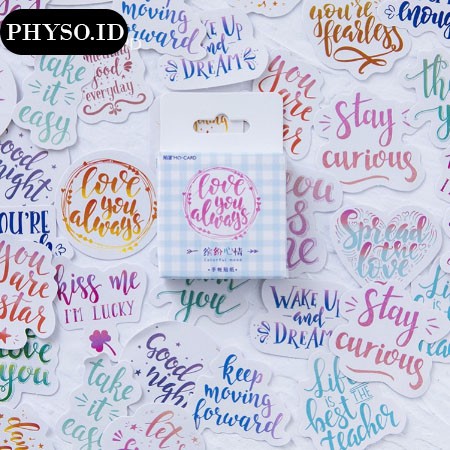 PHYSO.ID
good
everyday
take
it
easy
keep
moving
forward
Wake Up
and
DREAM
you're
fearless
enough
you
are
star
stay
curious
Good
night
YOU'RE
love
you
always
MO·CARD
love
you
always
缤纷心情
colorful mood
手帐贴纸
Spread
the
love
you
are
star
kiss me
I'M LUCKY
you
WAKE UP
AND
DREAM
Stay
curious
love
you
take
it
easy
Good
night
keep
moving
forward
Life
IS THE
best
teacher
let